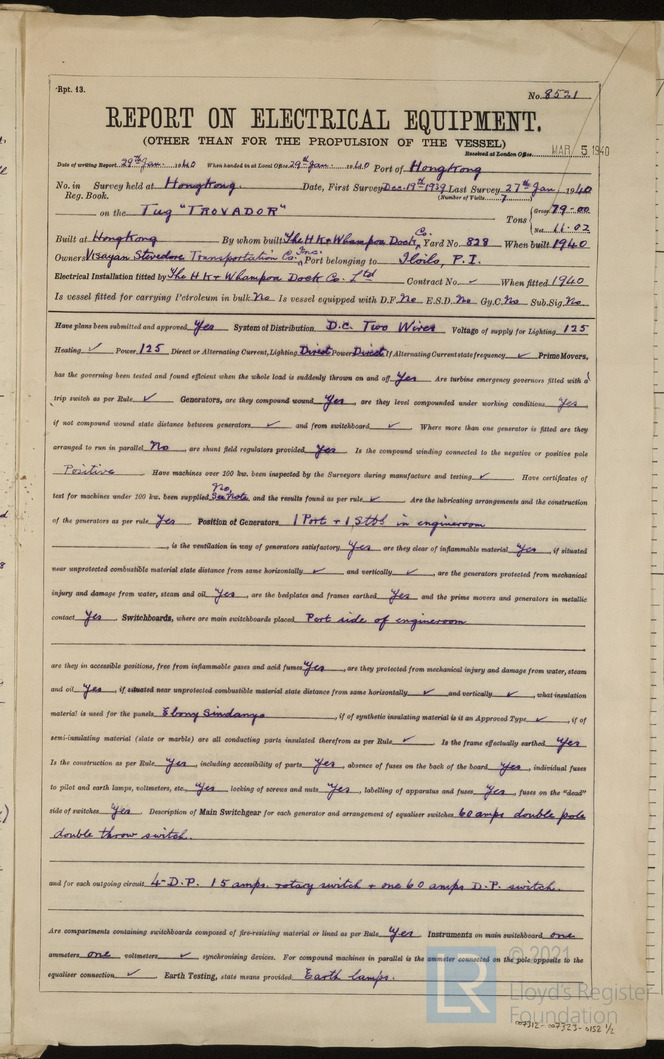 Rpt. 13.
No. 8521
REPORT ON ELECTRICAL EQUIPMENT.
(OTHER THAN FOR THE PROPULSION OF THE VESSEL)
Received at London Office MAR 5 1940
Date of writing Report 29th Jan. 1940 When handed in at Local Office 29th Jan. 1940 Port of Hongkong
No. in Survey held at Hongkong. Date, First Survey Dec. 19th 1939 Last Survey 27th Jan 1940
Reg. Book. (Number of Visits 7)
on the Tug "TROVADOR" Tons { Gross 79.00
Net 11.02
Built at Hongkong By whom built The H K & Whampoa Dock Co. Yard No. 828 When built 1940
Owners Visayan Stevedore Transportation Co. Inc. Port belonging to Iloilo, P. I.
Electrical Installation fitted by The H K & Whampoa Dock Co. Ltd Contract No. ✓ When fitted 1940
Is vessel fitted for carrying Petroleum in bulk No Is vessel equipped with D.F. No E.S.D. No Gy.C. No Sub.Sig. No
Have plans been submitted and approved Yes System of Distribution D.C. Two Wires Voltage of supply for Lighting 125
Heating ✓ Power 125 Direct or Alternating Current, Lighting Direct Power Direct If Alternating Current state frequency ✓ Prime Movers,
has the governing been tested and found efficient when the whole load is suddenly thrown on and off Yes Are turbine emergency governors fitted with a
trip switch as per Rule ✓ Generators, are they compound wound Yes, are they level compounded under working conditions Yes,
if not compound wound state distance between generators ✓ and from switchboard ✓ Where more than one generator is fitted are they
arranged to run in parallel No, are shunt field regulators provided Yes Is the compound winding connected to the negative or positive pole
Positive Have machines over 100 kw. been inspected by the Surveyors during manufacture and testing ✓ Have certificates of
test for machines under 100 kw. been supplied No, See Note and the results found as per rule ✓ Are the lubricating arrangements and the construction
of the generators as per rule Yes Position of Generators 1 Port + 1 Stbd in engineroom
, is the ventilation in way of generators satisfactory Yes are they clear of inflammable material Yes, if situated
near unprotected combustible material state distance from same horizontally ✓ and vertically ✓, are the generators protected from mechanical
injury and damage from water, steam and oil Yes, are the bedplates and frames earthed Yes and the prime movers and generators in metallic
contact Yes. Switchboards, where are main switchboards placed Port side of engineroom
are they in accessible positions, free from inflammable gases and acid fumes Yes, are they protected from mechanical injury and damage from water, steam
and oil Yes, if situated near unprotected combustible material state distance from same horizontally ✓ and vertically ✓, what insulation
material is used for the panels Ebony Sindanyo, if of synthetic insulating material is it an Approved Type ✓, if of
semi-insulating material (slate or marble) are all conducting parts insulated therefrom as per Rule ✓ Is the frame effectually earthed Yes
Is the construction as per Rule Yes, including accessibility of parts Yes, absence of fuses on the back of the board Yes, individual fuses
to pilot and earth lamps, voltmeters, etc., Yes, locking of screws and nuts Yes, labelling of apparatus and fuses Yes, fuses on the "dead"
side of switches Yes. Description of Main Switchgear for each generator and arrangement of equaliser switches 60 amps double pole
double throw switch.
and for each outgoing circuit 4-D.P. 15 amps. rotary switch + one 60 amps D.P. switch.
Are compartments containing switchboards composed of fire-resisting material or lined as per Rule Yes Instruments on main switchboard one
ammeters one voltmeters ✓ synchronising devices. For compound machines in parallel is the ammeter connected on the pole opposite to the
equaliser connection ✓ Earth Testing, state means provided Earth lamps.
© 2021
LR
Lloyd's Register
Foundation
007312-007323-0152 1/2